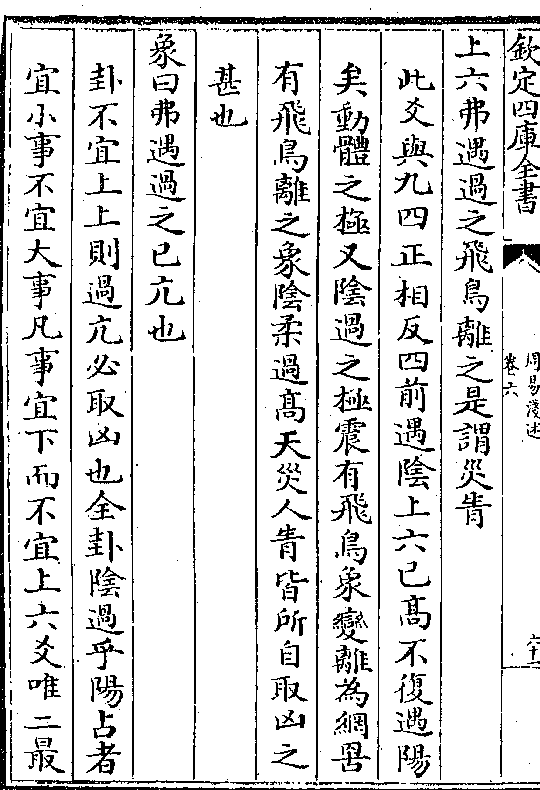 欽定四庫全書
周易淺述
卷六
六十二
上六弗遇過之飛鳥離之是謂災眚
此爻與九四正相反四前遇陰上六已髙不復遇陽
矣動體之極又陰過之極震有飛鳥象變離為網罟
有飛鳥離之象陰柔過髙天災人眚皆所自取凶之
甚也
象曰弗遇過之已亢也
卦不宜上上則過亢必取凶也全卦陰過乎陽占者
宜小事不宜大事凡事宜下而不宜上六爻唯二最